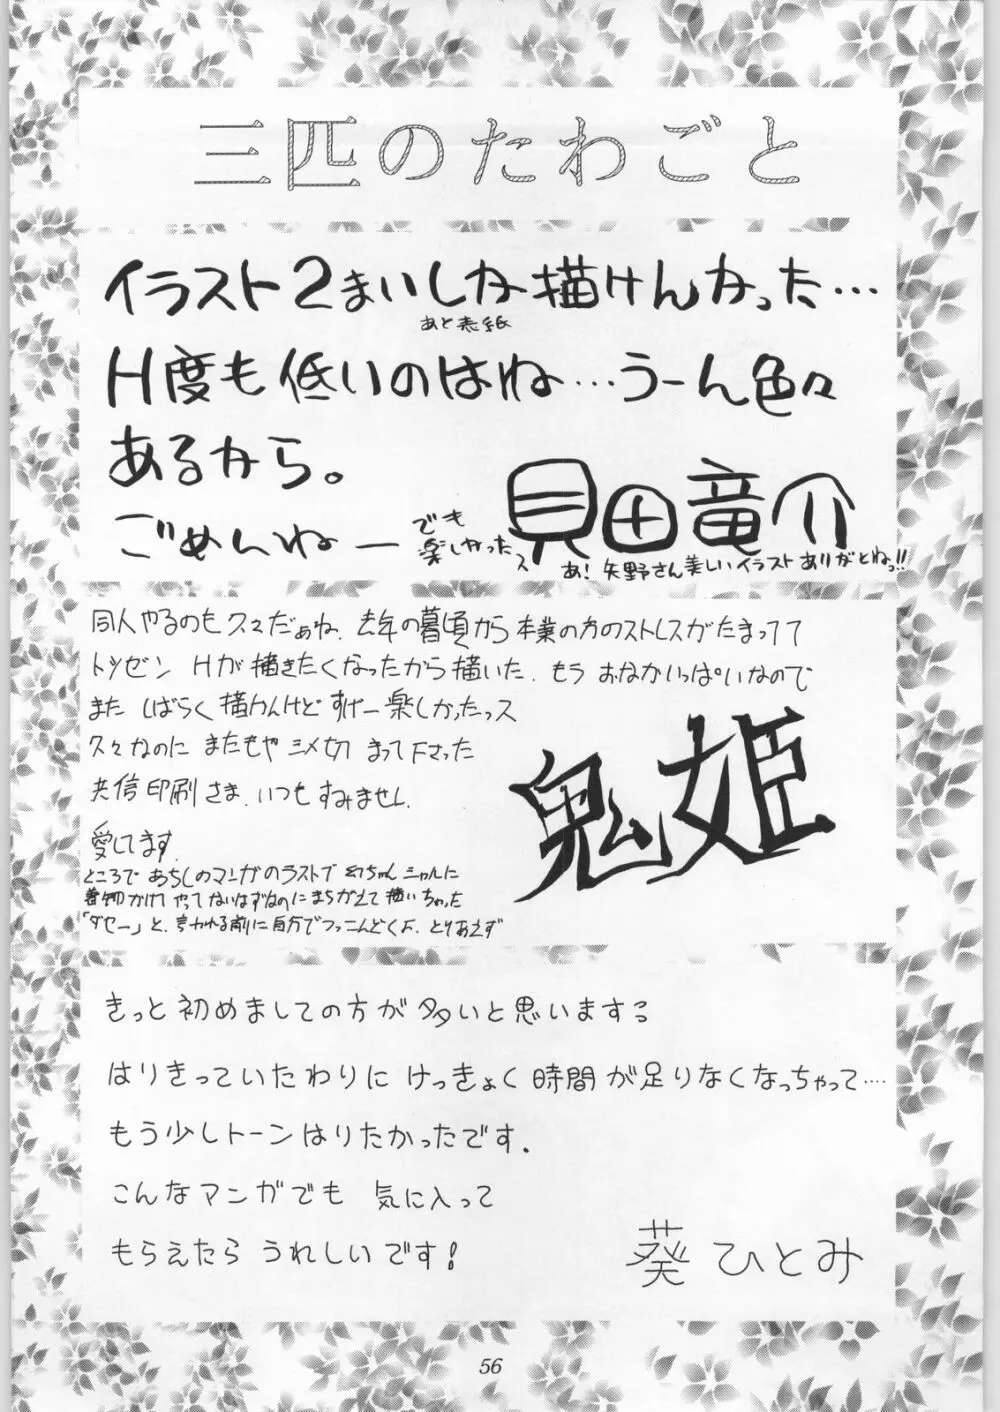 三匹のたわごと
イラスト2まいしか描けんかった…
あと表紙
H度も低いのはね…うーん色々
あるから。
ごめんねー
でも
楽しかったス
貝田竜介
あ！矢野さん美しいイラストありがとねっ!!
同人やるのも久々だぁね、去年の暮頃から本業の方のストレスがたまってて
トツゼン Hが描きたくなったから描いた、もう おなかいっぱいなので
また しばらく描かんけど すげー楽しかったっス
久々なのに またもや シメ切 まって下さった
共信印刷さま、いつも すみません、
愛してます、
鬼姫
ところで あちしのマンガのラストで 幻ちゃん シャルに
着物かけて やってないはずなのに まちがえて 描いちゃった
「ダセー」と、言われる前に自分でつっこんどくよ、とりあえず
きっと初めましての方が多いと思いまする
はりきっていたわりに けっきょく 時間が足りなくなっちゃって‥‥
もう少しトーンはりたかったです.
こんなマンガでも 気に入って
もらえたら うれしいです！
葵ひとみ
56